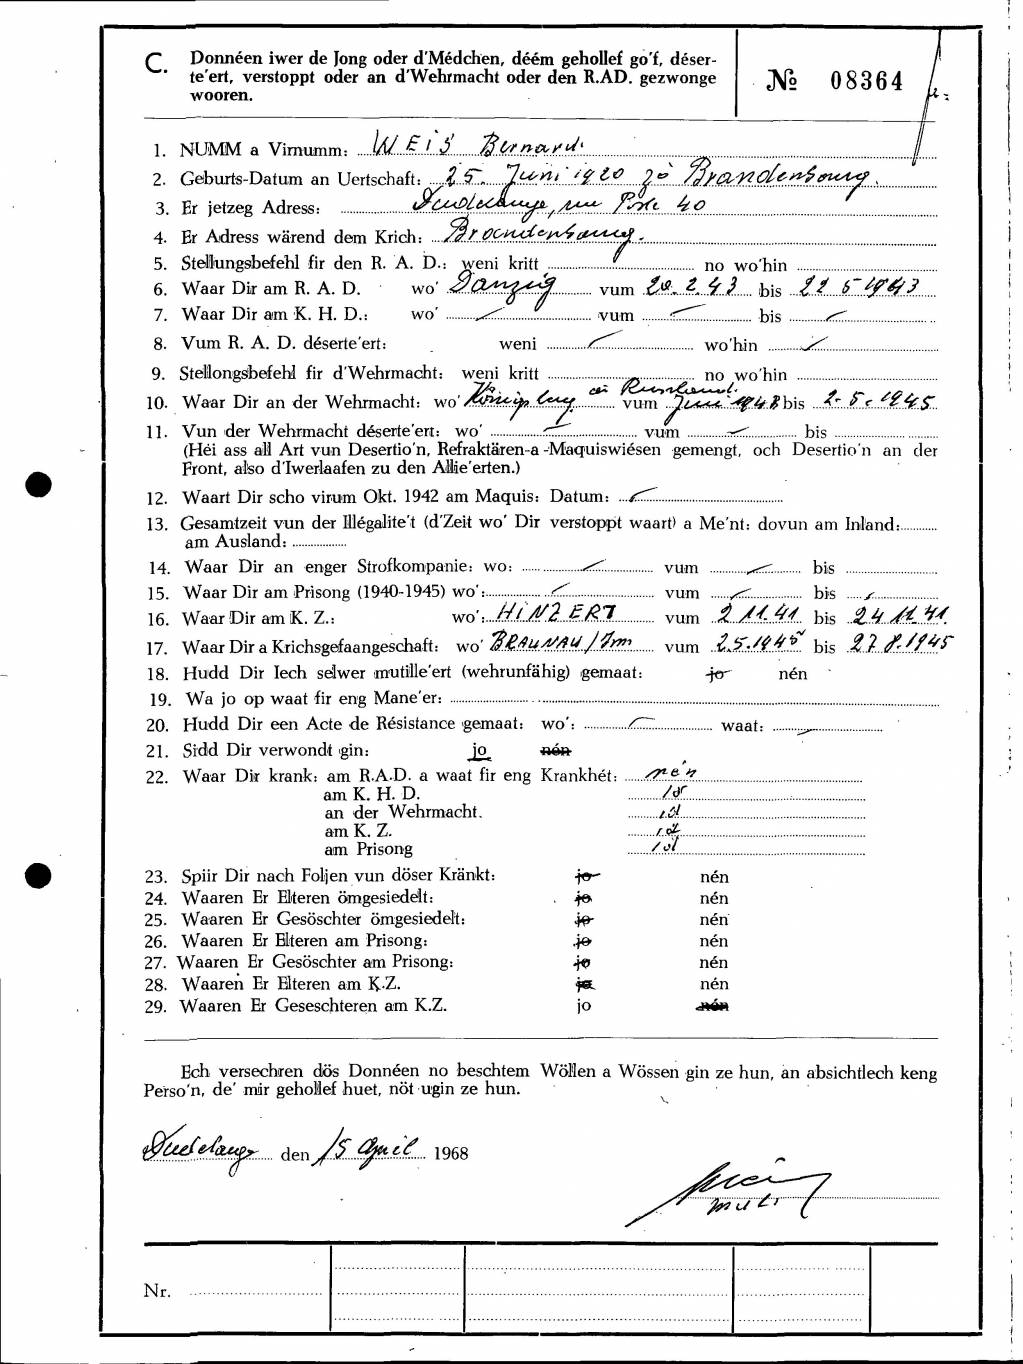 C. Donnéen iwer de Jong oder d'Médchen, déém gehollef go'f, déser-
te'ert, verstoppt oder an d'Wehrmacht oder den R.AD. gezwonge
wooren.
№ 08364
1. NUMM a Virnumm: WEIS Bernard
2. Geburts-Datum an Uertschaft: 25. Juni 1920 zo Brandenbourg.
3. Er jetzeg Adress: Dudelange, rue Poste 40
4. Er Adress wärend dem Krich: Brandenbourg.
5. Stellungsbefehl fir den R. A. D.: weni kritt no wo'hin
6. Waar Dir am R. A. D. wo' Danzig vum 20.2.43 bis 22 5 1943
7. Waar Dir am K. H. D.: wo' vum bis
8. Vum R. A. D. déserte'ert: weni wo'hin
9. Stellongsbefehl fir d'Wehrmacht: weni kritt no wo'hin
10. Waar Dir an der Wehrmacht: wo' Königsberg a Russland. vum Juni 1943 bis 2.5.1945
11. Vun der Wehrmacht déserte'ert: wo' vum bis
(Héi ass all Art vun Desertio'n, Refraktären-a-Maquiswiésen gemengt, och Desertio'n an der
Front, also d'Iwerlaafen zu den Allie'erten.)
12. Waart Dir scho virum Okt. 1942 am Maquis: Datum:
13. Gesamtzeit vun der Illégalite't (d'Zeit wo' Dir verstoppt waart) a Me'nt: dovun am Inland:
am Ausland:
14. Waar Dir an enger Strofkompanie: wo: vum bis
15. Waar Dir am Prisong (1940-1945) wo': vum bis
16. Waar Dir am K. Z.: wo': HINZERT vum 2 11.41 bis 24 11.41.
17. Waar Dir a Krichsgefaangeschaft: wo' BRAUNAU/Inn vum 2.5.1945 bis 27.8.1945
18. Hudd Dir Iech selwer mutille'ert (wehrunfähig) gemaat: jo nén
19. Wa jo op waat fir eng Mane'er:
20. Hudd Dir een Acte de Résistance gemaat: wo': waat:
21. Sidd Dir verwondt gin: jo nén
22. Waar Dir krank: am R.A.D. a waat fir eng Krankhét: nén
am K. H. D.
an der Wehrmacht.
am K. Z.
am Prisong
23. Spiir Dir nach Foljen vun döser Kränkt: jo nén
24. Waaren Er Elteren ömgesiedelt: jo nén
25. Waaren Er Gesöschter ömgesiedelt: jo nén
26. Waaren Er Elteren am Prisong: jo nén
27. Waaren Er Gesöschter am Prisong: jo nén
28. Waaren Er Elteren am K.Z. jo nén
29. Waaren Er Geseschteren am K.Z. jo nén
Ech versechren dös Donnéen no beschtem Wöllen a Wössen gin ze hun, an absichtlech keng
Perso'n, de' mir gehollef huet, nöt ugin ze hun.
Dudelange den 15 April 1968
Nr.